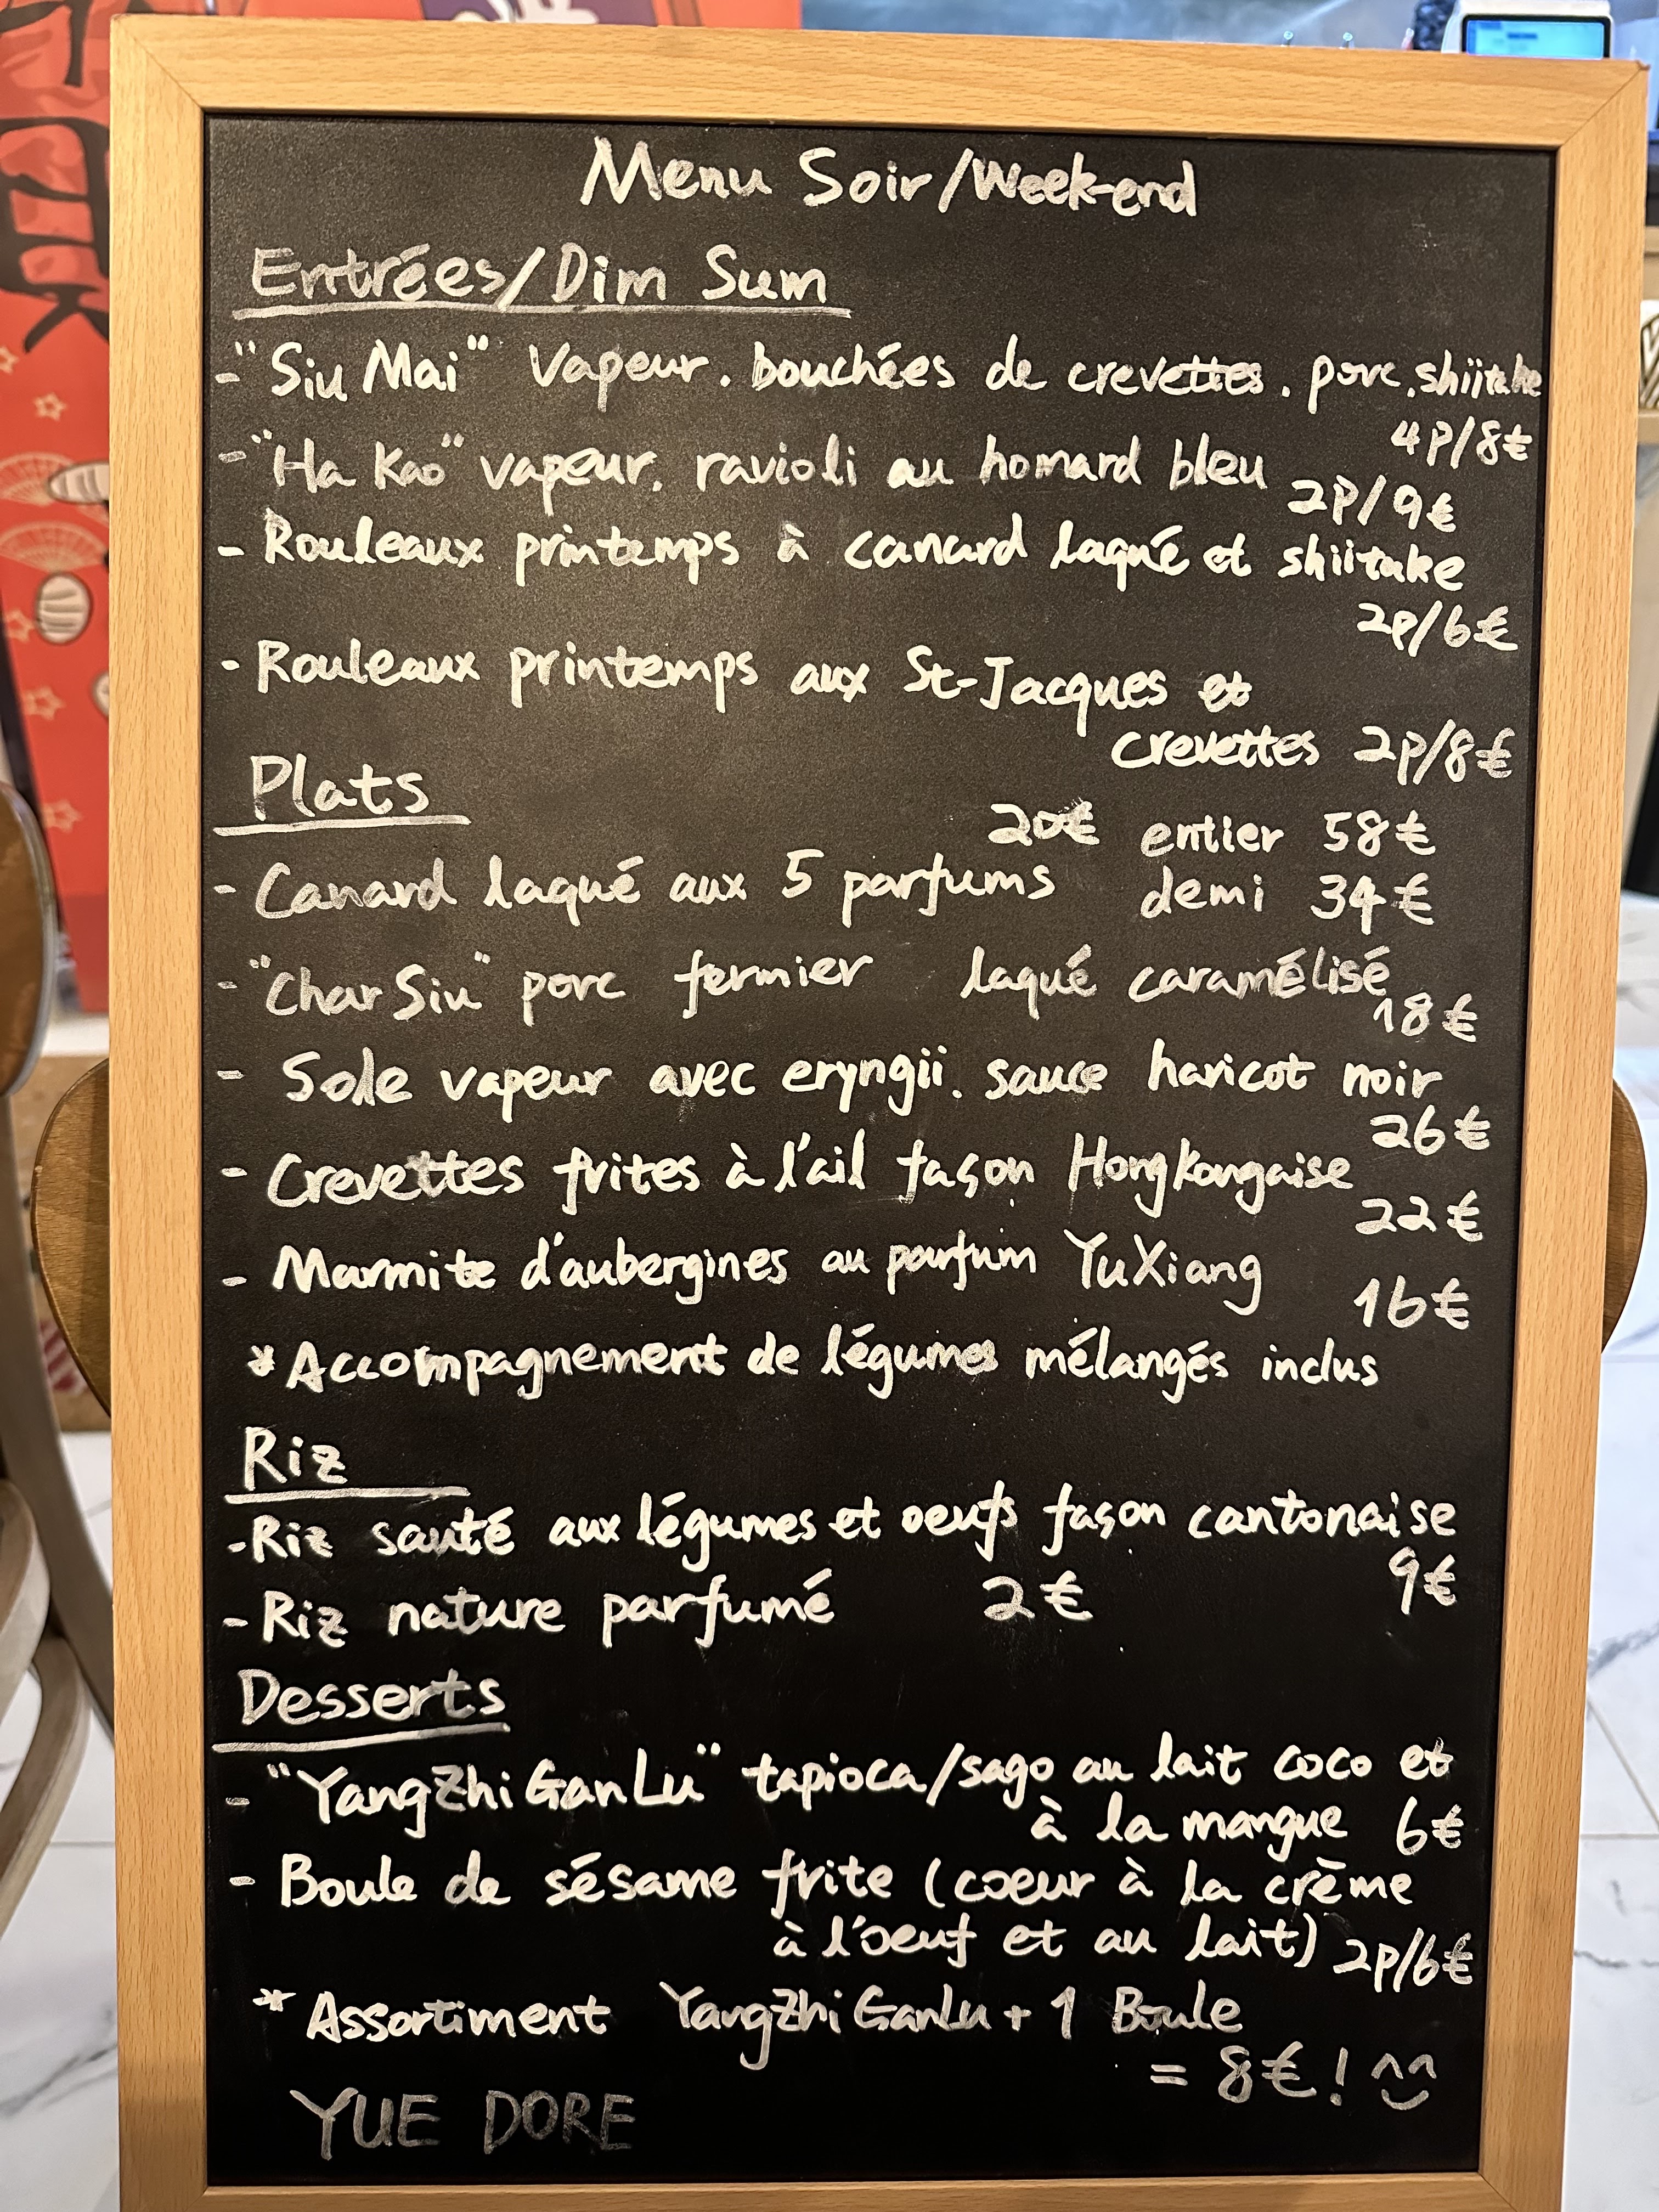 Menu Soir/Week-end
Entrées/Dim Sum
- "Siu Mai" Vapeur. bouchées de crevettes. porc. shiitake
4P/8€
- "Ha Kao" vapeur. ravioli au homard bleu
2P/9€
- Rouleaux printemps à canard laqué et shiitake
2P/6€
- Rouleaux printemps aux St-Jacques et
crevettes 2p/8€
Plats
20€ entier 58€
- Canard laqué aux 5 parfums demi 34€
- "Char Siu" porc fermier laqué caramélisé
18€
- Sole vapeur avec eryngii. sauce haricot noir
26€
- Crevettes frites à l'ail façon HongKongaise
22€
- Marmite d'aubergines au parfum YuXiang
16€
*Accompagnement de légumes mélangés inclus
Riz
- Riz sauté aux légumes et oeufs façon cantonaise
9€
- Riz nature parfumé 2€
Desserts
- "YangZhi GanLu" tapioca/sago au lait coco et
à la mangue 6€
- Boule de sésame frite (coeur à la crème
à l'oeuf et au lait) 2p/6€
* Assortiment YangZhi GanLu + 1 Boule
= 8€! ^^
YUE DORE